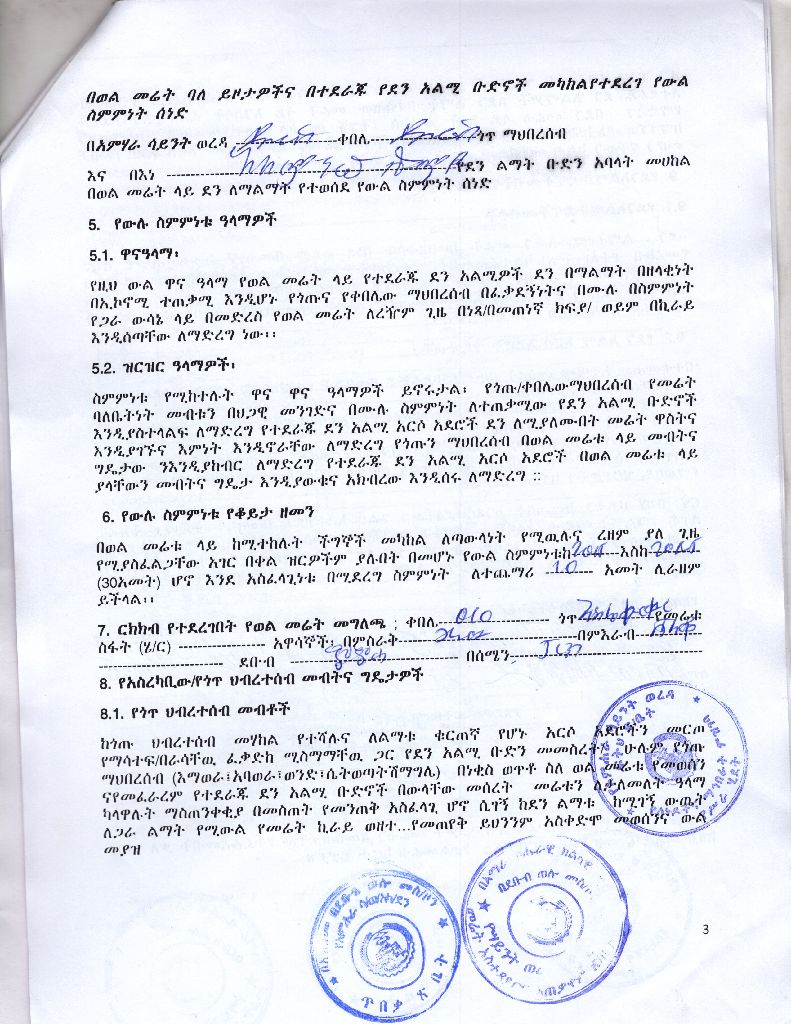 በወል መሬት ባለ ይዞታዎችና በተደራጁ የደን አልሚ ቡድኖች መካከልየተደረገ የውል
ስምምነት ሰነድ
በአምሃራ ሳይንት ወረዳ ቀበሌ ጎጥ ማህበረሰብ
እና በእነ የደን ልማት ቡድን አባላት መሀከል
በወል መሬት ላይ ደን ለማልማት የተወሰደ የውል ስምምነት ሰነድ
5. የውሉ ስምምነቱ ዓላማዎች
5.1. ዋናዓላማ፡
የዚህ ውል ዋና ዓላማ የወል መሬት ላይ የተደራጁ ደን አልሚዎች ደን በማልማት በዘላቂነት
በኢኮኖሚ ተጠቃሚ እንዲሆኑ የጎጡና የቀበሌው ማህበረሰብ በፈቃደኝነትና በሙሉ በስምምነት
የጋራ ውሳኔ ላይ በመድረስ የወል መሬት ለረዥም ጊዜ በነጻ/በመጠነኛ ክፍያ/ ወይም በኪራይ
እንዲሰጣቸው ለማድረግ ነው፡፡
5.2. ዝርዝር ዓላማዎች፡
ስምምነቱ የሚከተሉት ዋና ዋና ዓላማዎች ይኖሩታል፤ የጎጡ/ቀበሌውማህበረሰብ የመሬት
ባለቤትነት መብቱን በህጋዊ መንገድና በሙሉ ስምምነት ለተጠቃሚው የደን አልሚ ቡድኖች
እንዲያስተላልፍ ለማድረግ የተደራጁ ደን አልሚ አርሶ አደሮች ደን ለሚያለሙበት መሬት ዋስትና
እንዲያገኙና እምነት እንዲኖራቸው ለማድረግ የጎጡን ማህበረሰብ በወል መሬቱ ላይ መብትና
ግዴታው ንእንዲያከብር ለማድረግ የተደራጁ ደን አልሚ አርሶ አደሮች በወል መሬቱ ላይ
ያላቸውን መብትና ግዴታ እንዲያውቁና አክብረው እንዲሰሩ ለማድረግ ፡፡
6. የውሉ ስምምነቱ የቆይታ ዘመን
በወል መሬቱ ላይ ከሚተከሉት ችግኞች መካከል ለጣውላነት የሚዉሉና ረዘም ያለ ጊዜ
የሚያስፈልጋቸው አገር በቀል ዝርዎችም ያሉበት በመሆኑ የውል ስምምነቱከ እስከ
(30አመት) ሆኖ እንደ አስፈላጊነቱ በሚደረግ ስምምነት ለተጨማሪ 10 አመት ሊራዘም
ይችላል፡፡
7. ርክክብ የተደረገበት የወል መሬት መግለጫ ፤ ቀበሌ 010 ጎጥ የመሬቱ
ስፋት (ሄ/ር) አዋሳኞች፤ በምስራቅ በምእራብ
ደቡብ በሰሜን
8. የአስረካቢው/የጎጥ ህብረተሰብ መብትና ግዴታዎች
8.1. የጎጥ ህብረተሰብ መብቶች
ከጎጡ ህብረተሰብ መሃከል የተሻሉና ለልማቱ ቁርጠኛ የሆኑ አርሶ አደሮችን መርጦ
የማሳተፍ/በራሳቸዉ ፈቃድከ ሚስማማቸዉ ጋር የደን አልሚ ቡድን መመስረት፤ ሁሉም የጎጡ
ማህበረሰብ (እማወራ፤አባወራ፤ወንድ፤ሴትወጣትሽማግሌ) በነቂስ ወጥቶ ስለ ወል መሬቱ የመወሰን
ናየመፈራረም የተደራጁ ደን አልሚ ቡድኖች በውላቸው መሰረት መሬቱን ለታለመለት ዓላማ
ካላዋሉት ማስጠንቀቂያ በመስጠት የመንጠቅ አስፈላጊ ሆኖ ሲገኝ ከደን ልማቱ ከሚገኝ ውጤት
ለጋራ ልማት የሚውል የመሬት ኪራይ ወዘተ...የመጠየቅ ይህንንም አስቀድሞ መወሰንና ውል
መያዝ
3
ጥበቃ ጽ ቤት